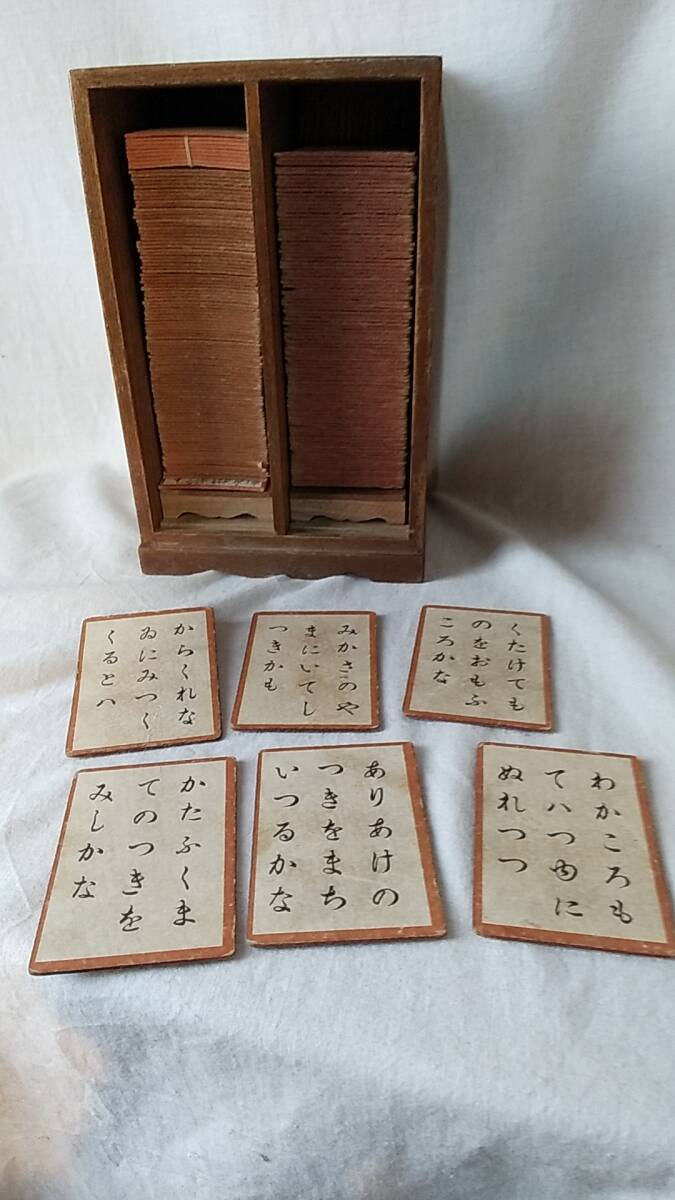 からくれな
ゐにみつく
くるとハ
みかさのや
まにいてし
つきかも
くたけても
のをおもふ
ころかな
かたふくま
てのつきを
みしかな
ありあけの
つきをまち
いつるかな
わかころも
てハつゆに
ぬれつつ